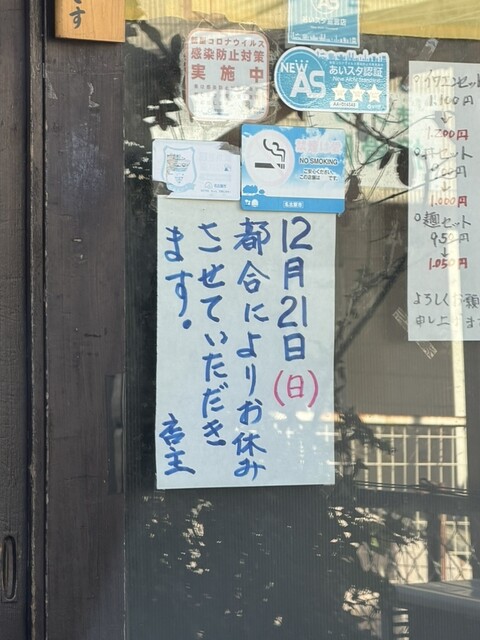 です
新型コロナウイルス
感染防止対策
実施中
NEW
AS
あいスタ認証
New Aichi Standard
NO SMOKING
名古屋市
12月21日(日)
都合によりお休み
させていただき
ます。
店主
1,100円
↓
1,200円
セット
↓
1,000円
○麺セット
950円
↓
1,050円
よろしくお願
申し上げます